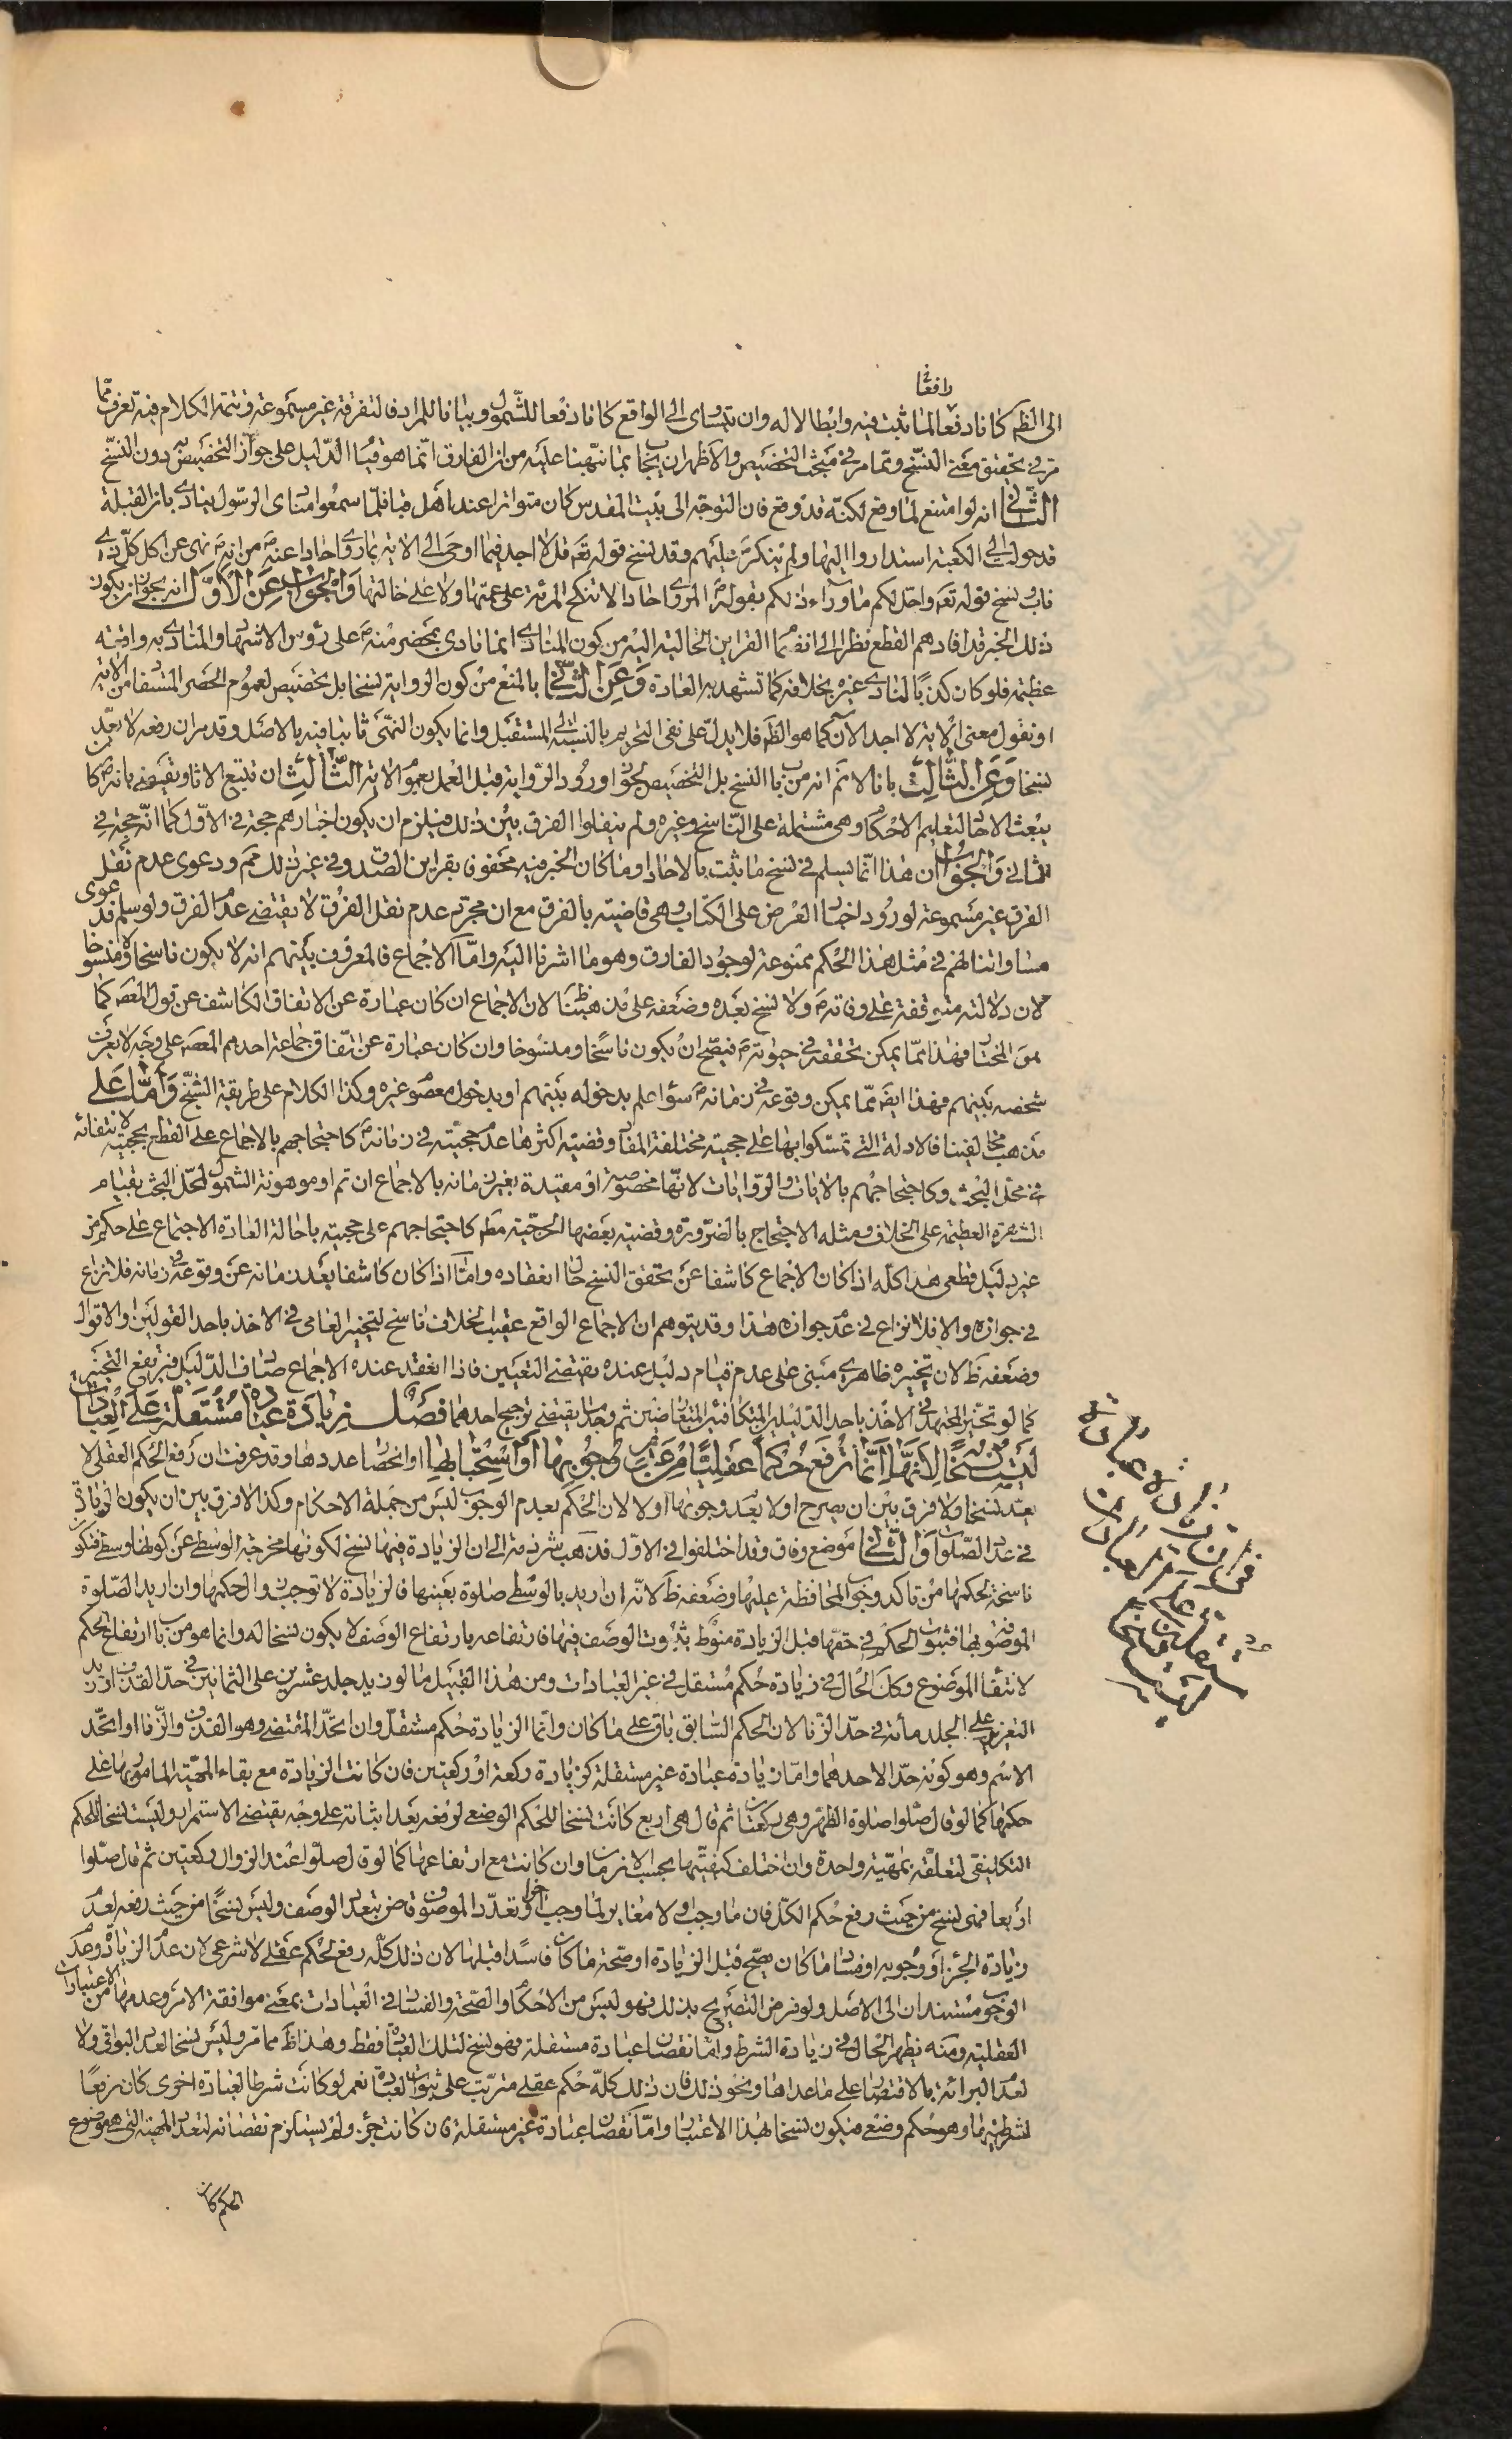 رافعا
الى الظم كانا دفعا لما ثبت فيه وابطالا له وان تساوى الى الواقع كانا دفعا للشمول وبيانا للمراد فالتفرقة غير مسموعة وتتمة الكلام فيه تعرف مما
مر في تحقيق معنى النسخ وتمام مر في مبحث التخصيص والاظهر ان يجاب بما نبهنا عليه من ان الفارق انما هو قيام الدليل على جواز التخصيص دون النسخ
الثاني انه لو امتنع لما وقع لكنه قد وقع فان التوجه الى بيت المقدس كان متواترا عند اهل قبا فلما سمعوا منادى الرسول ينادي بان القبلة
قد حولت الى الكعبة استداروا اليها ولم ينكر عليهم وقد نسخ قوله تعم قل لا اجد فيما اوحى الى الاية بما روى احادا عنه من انه نهى عن اكل كل ذي
ناب ونسخ قوله تعم واحل لكم ما وراء ذلكم بقوله المروى احادا لا تنكح المرئة على عمتها ولا على خالتها والجواب عن الاول انه يجوز ان يكون
ذلك الخبر قد افادهم القطع نظرا الى انضمام القراين الحالية اليه من كون المنادى انما نادى بمحضر منه على رؤس الاشهاد والمنادى به واقعة
عظيمة فلو كان كذبا لنادى غيره بخلافه كما تشهد به العادة وعن الثاني بالمنع من كون الرواية نسخا بل تخصيص لعموم الحصر المستفاد من الاية
او نقول معنى الاية لا اجد الآن كما هو الظم فلا يدل على نفى التحريم بالنسبة الى المستقبل وانما يكون النهى ثابتا فيه بالاصل وقد مر ان رفعه لا يعد
نسخا وعن الثالث بانا لا نم انه من باب النسخ بل التخصيص لجواز ورود الرواية قبل العمل بعموم الاية الثالث ان تتبع الاثار يقتضى بانه كان
يبعث الاحاد لتعليم الاحكام وهى مشتملة على الناسخ وغيره ولم ينقلوا الفرق بين ذلك فيلزم ان يكون اخبارهم حجة في الاول كما انه حجة في
الثاني والجواب ان هذا انما يسلم في نسخ ما ثبت بالاحاد او ما كان الخبر فيه محفوفا بقراين الصدق وفي غير ذلك مم ودعوى عدم نقل
الفرق غير مسموعة لورود اخبار العرض على الكتاب وهى قاضية بالفرق مع ان مجرد عدم نقل الفرق لا يقتضى عدم الفرق ولو سلم فدعوى
مساواتنا لهم في مثل هذا الحكم ممنوعة لوجود الفارق وهو ما اشرنا اليه واما الاجماع فالمعروف بينهم انه لا يكون ناسخا ولا منسوخا
لان دلالته متوقفة على وفاته ولا نسخ بعده وضعفه على مذهبنا ظ لان الاجماع ان كان عبارة عن الاتفاق الكاشف عن قول المعصوم كما
هو المختار فهذا مما يمكن تحققه في حيوته فيصح ان يكون ناسخا ومنسوخا وان كان عبارة عن اتفاق جماعة احدهم المعصوم على وجه لا يعرف
شخصه بينهم فهذا ايضا مما يمكن وقوعه في زمانه سواء علم بدخوله بينهم او بدخول معصوم غيره وكذا الكلام على طريقة الشيخ واما على
مذهب مخالفينا فالادلة التي تمسكوا بها على حجيته مختلفة المفاد وقضية اكثرها عدم حجيته في زمانه كاحتجاجهم بالاجماع على القطع بحجيته لانتفائه
في محل البحث وكاحتجاجهم بالايات والروايات لانها مخصوصة او مقيدة بغير زمانه بالاجماع ان تم او موهونة الشمول لمحل البحث بقيام
الشهرة العظيمة على الخلاف ومثله الاحتجاج بالضرورة وقضية بعضها الحجية مطم كاحتجاجهم على حجيته باحالة العادة الاجتماع على حكم من
غير دليل قطعى هذا كله اذا كان الاجماع كاشفا عن تحقق النسخ حال انعقاده واما اذا كان كاشفا بعد زمانه عن وقوعه في زمانه فلا نزاع
في جوازه والا فلا نزاع في عدم جوازه هذا وقد يتوهم ان الاجماع الواقع عقيب الخلاف ناسخ لتخيير العامى في الاخذ باحد القولين والاقوال
وضعفه ظ لان تخييره ظاهرى مبنى على عدم قيام دليل عنده يقتضى التعيين فاذا انعقد عنده الاجماع صادف الدليل فيرتفع التخيير
كما لو تخير المجتهد في الاخذ باحد الدليلين المتكافئين المتعارضين ثم وجد ما يقتضى ترجيح احدهما فصل زيادة عبادة مستقلة على العبادات
ليست نسخا لانها انما ترفع حكما عقليا من عدم وجوبها او استحبابها او انحصار عددها وقد عرفت ان رفع الحكم العقلى لا
يعد نسخا ولا فرق بين ان يصرح اولا بعدم وجوبها او لا لان الحكم بعدم الوجوب ليس من جملة الاحكام وكذا لا فرق بين ان يكون الزيادة
في عدد الصلوات او لا والثاني موضع وفاق وقد اختلفوا في الاول فذهب شرذمة الى ان الزيادة فيها نسخ لكونها مخرجة الوسطى عن كونها وسطى فتكون
ناسخة لحكمها من تاكد وجوب المحافظة عليها وضعفه ظ لانه ان اريد بالوسطى صلوة بعينها فالزيادة لا توجب زوال حكمها وان اريد الصلوة
الموصوفة بها فثبوت الحكم في حقها قبل الزيادة منوط بثبوت الوصف فيها فارتفاعه بارتفاع الوصف لا يكون نسخا له وانما هو من باب ارتفاع الحكم
لانتفاء الموضوع وكذا الحال في زيادة حكم مستقل في غير العبادات ومن هذا القبيل ما لو زيد جلد عشرين على الثمانين في حد القذف او زيد
التغريب على الجلد مأة في حد الزنا لان الحكم السابق باق على ما كان وانما الزيادة حكم مستقل وان اتحد المقتضى وهو القذف والزنا او اتحد
الاسم وهو كونه حدا لاحدهما واما زيادة عبادة غير مستقلة كزيادة ركعة او ركعتين فان كانت الزيادة مع بقاء المهية المامور بها على
حكمها كما لو قال صلوا صلوة الظهر وهى ركعتان ثم قال هى اربع كانت نسخا للحكم الوضعى لرفعه بعد اثباته على وجه يقتضى الاستمرار وليست نسخا للحكم
التكليفى لتعلقه بمهية واحدة وان اختلف كيفيتها بحسب الازمان وان كانت مع ارتفاعها كما لو قال صلوا عند الزوال ركعتين ثم قال صلوا
اربعا فهى نسخ من حيث رفع حكم الكل فان ما وجب اولا مغاير لما وجب اخرا وتعدد الموصوف قاض بتعدد الوصف وليس نسخا من حيث رفعه لعدم
زيادة الجزء او وجوبه او فساد ما كان يصح قبل الزيادة او صحة ما كان فاسدا قبلها لان ذلك كله رفع لحكم عقلى لا شرعى لان عدم الزيادة وعدم
الوجوب مستندان الى الاصل ولو فرض التصريح بذلك فهو ليس من الاحكام والصحة والفساد في العبادات بمعنى موافقة الامر وعدمها من الاعتبارات
العقلية ومنه يظهر الحال في زيادة الشرط واما نقصان عبادة مستقلة فهو نسخ لتلك العبادة فقط وهذا ظ مما مر وليس نسخا لعدد البواقى ولا
لعدم البرائة بالاقتصار على ما عداها ونحو ذلك فان ذلك كله حكم عقلى مترتب على ثبوت العبادة نعم لو كانت شرطا لعبادة اخرى كان رفعا
لشرطيتها وهو حكم وضعى فيكون نسخا بهذا الاعتبار واما نقصان عبادة غير مستقلة فان كانت جزء ولم يستلزم نقصانه لتعدد المهية التي هى موضوع
الحكم كان
في ان زيادة عبادة
مستقلة على العبادات
ليست نسخا